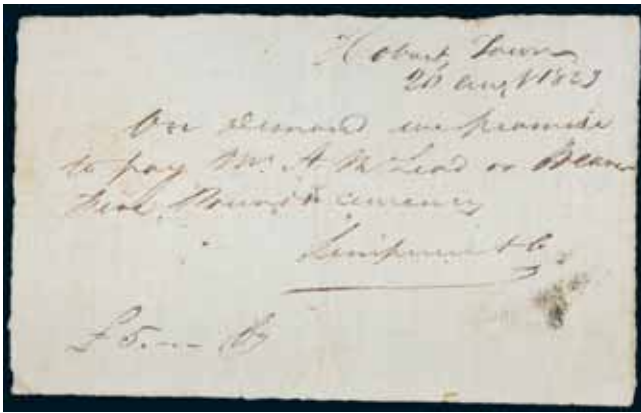 Hobart Town
20 Augt 1823
On demand we promise
to pay Mr. A McLeod or Bearer
Five Pounds currency
& Co.
£ 5..--